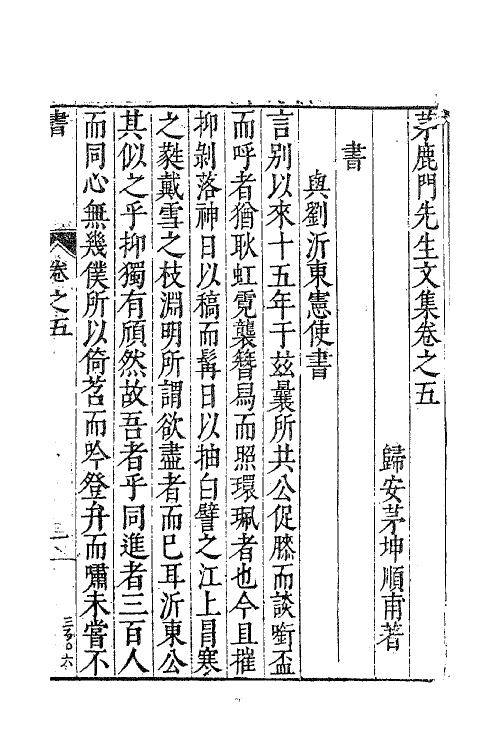 茅鹿門先生文集卷之五
歸安茅坤順甫著
書
與劉沂東憲使書
言别以來十五年于兹曩所共公促膝而談銜盃
而呼者猶耿虹霓襲簪舄而照環珮者也今且摧
抑剝落神日以稿而髯日以抽白譬之江上冐寒
之蕤戴雪之枝淵明所謂欲盡者而已耳沂東公
其似之乎抑獨有頎然故吾者乎同進者三百人
而同心無幾僕所以倚苕而吟登弁而嘯未嘗不
書
卷之五
三百六